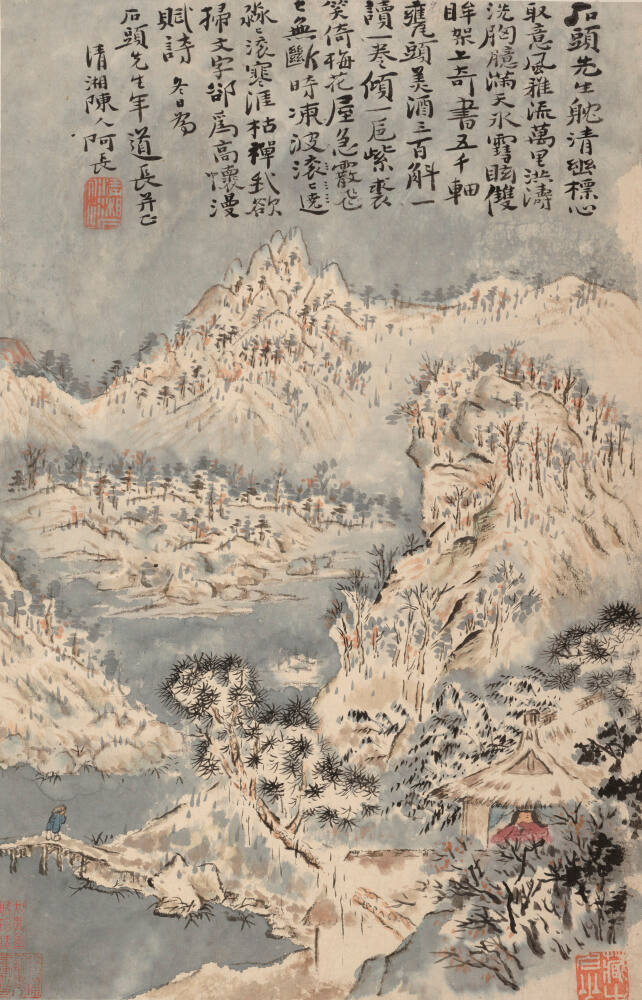 石頭先生耽清幽標心
取意風雅流萬里洪濤
洗胸臆滿天冰雪眩雙
眸架上奇書五千軸
甕頭美酒三百斛一
讀一卷傾一卮紫裘
笑倚梅花屋急霰飛
〻無斷時凍波滾〻遶
淼〻滾寒涯枯禪我欲
掃文字卻為高懷漫
賦詩 冬日為
石頭先生年道長并正
清湘陳人阿長